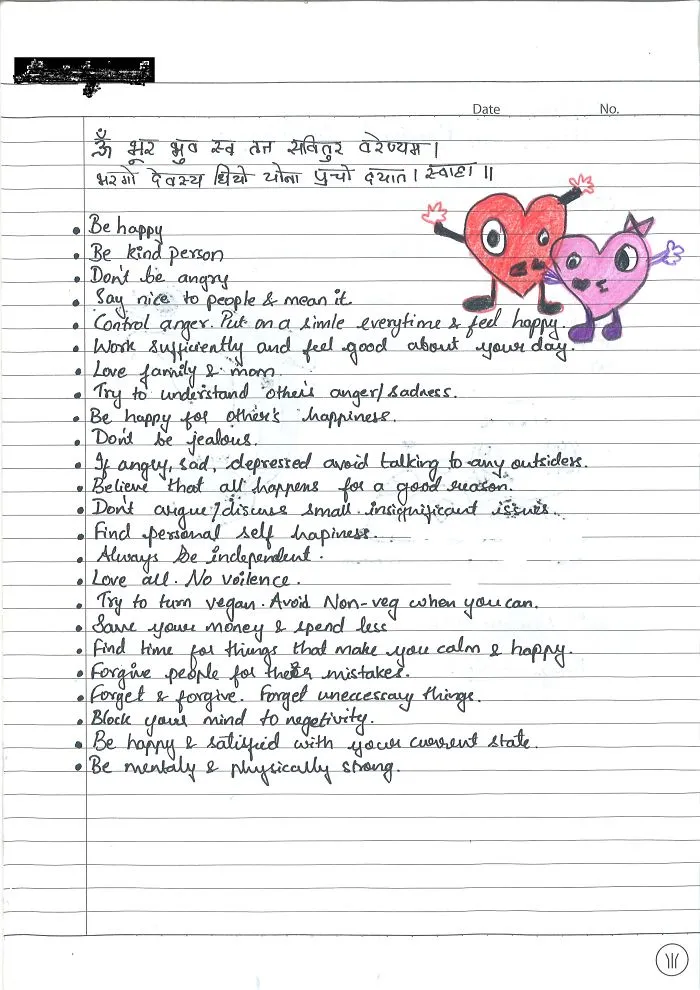 Date No.
ॐ भूर भुव स्व तत सवितुर वरेण्यम।
भरगो देवस्य धियो योना प्रचो दयात। स्वाहा॥
• Be happy
• Be kind person
• Don't be angry
• Say nice to people & mean it.
• Control anger. Put on a simle everytime & feel happy.
• Work sufficiently and feel good about your day.
• Love family & mom.
• Try to understand other's anger/sadness.
• Be happy for other's happiness.
• Don't be jealous.
• If angry, sad, depressed avoid talking to any outsiders.
• Believe that all happens for a good reason.
• Don't argue/discuss small insignificant issues.
• Find personal self hapiness.
• Always be independent.
• Love all. No voilence.
• Try to turn vegan. Avoid Non-veg when you can.
• Save your money & spend less
• Find time for things that make you calm & happy.
• Forgive people for their mistakes.
• Forget & forgive. Forget uneccessary things.
• Block your mind to negetivity.
• Be happy & satisfied with your current state.
• Be mentaly & physically strong.